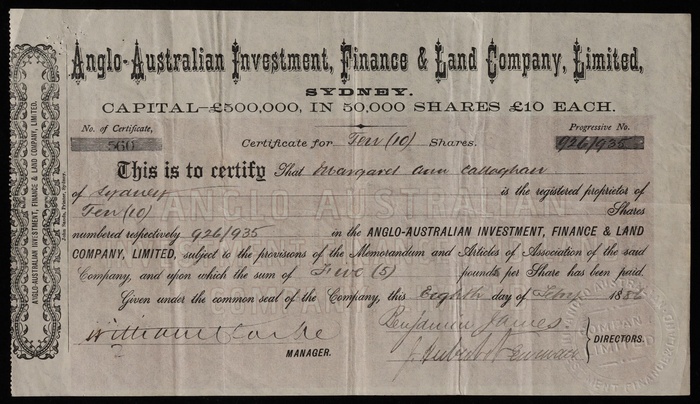 Anglo-Australian Investment, Finance & Land Company, Limited,
SYDNEY.
CAPITAL—£500,000, IN 50,000 SHARES £10 EACH.
No. of Certificate,
560
Certificate for Ten (10) Shares.
Progressive No.
926/935
This is to certify That Margaret Ann Callaghan
of Sydney is the registered proprietor of
Ten (10) Shares
numbered respectively 926/935 in the ANGLO-AUSTRALIAN INVESTMENT, FINANCE & LAND
COMPANY, LIMITED, subject to the provisions of the Memorandum and Articles of Association of the said
Company, and upon which the sum of Five (5) pounds per Share has been paid.
Given under the common seal of the Company, this Eighth day of Feby 188
Benjamin James.
William
MANAGER.
J. Hubert Newman
DIRECTORS.
ANGLO-AUSTRALIAN INVESTMENT, FINANCE & LAND COMPANY, LIMITED.
John Sands, Printer, Sydney.
ANGLO AUSTRALIAN
COMPANY
LIMITED